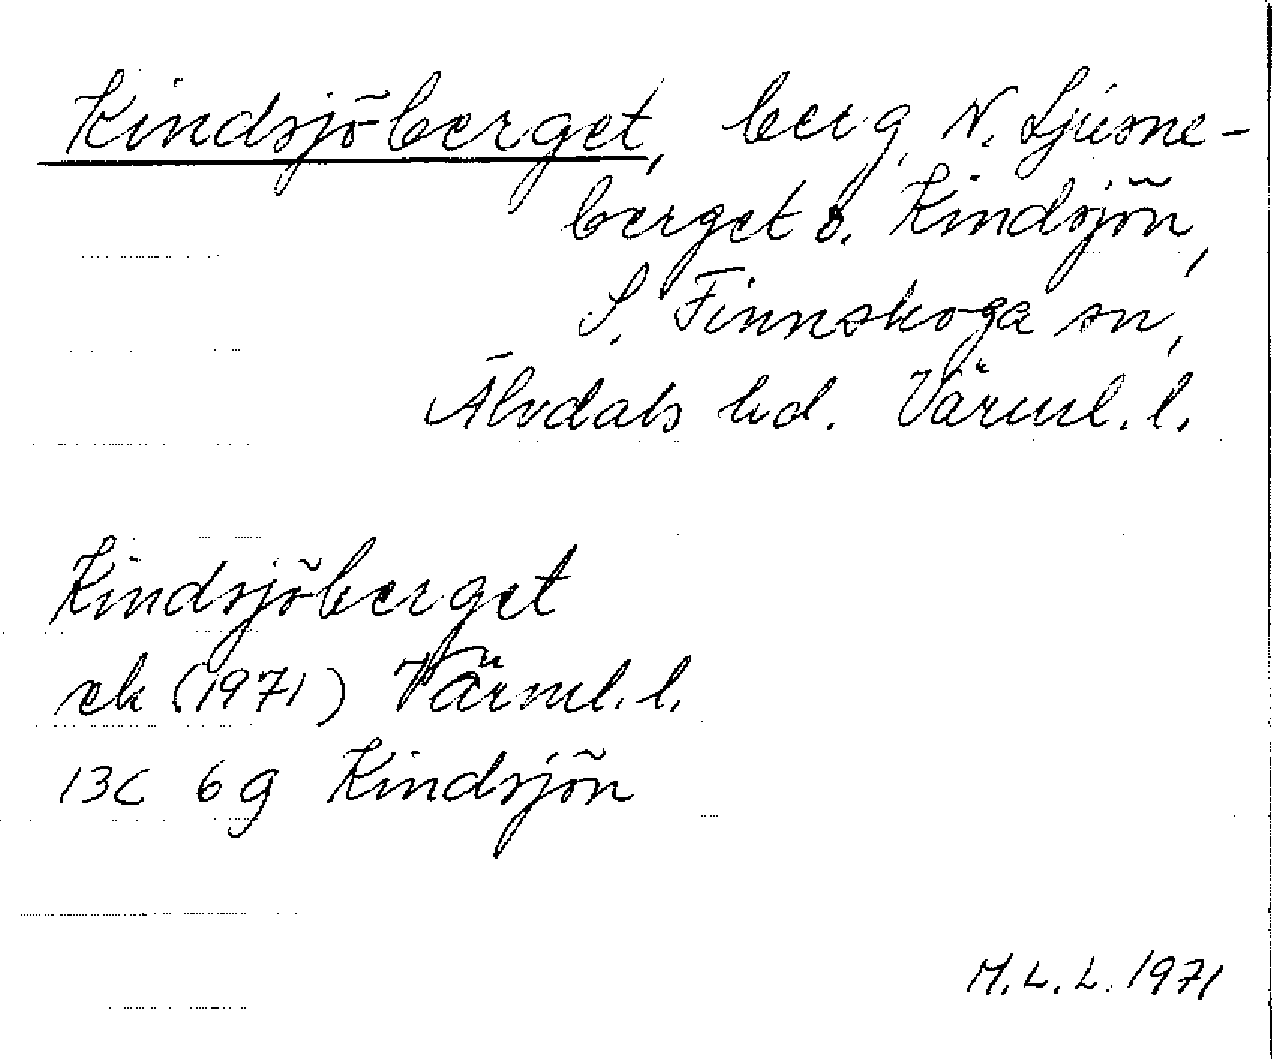 Kindsjöberget, berg, N. Ljusne-
berget ö. Kindsjön,
S. Finnskoga sn,
Älvdals hd. Värml. l.
Kindsjöberget
ek (1971) Värml. l.
13C 6g Kindsjön
M. L. L. 1971